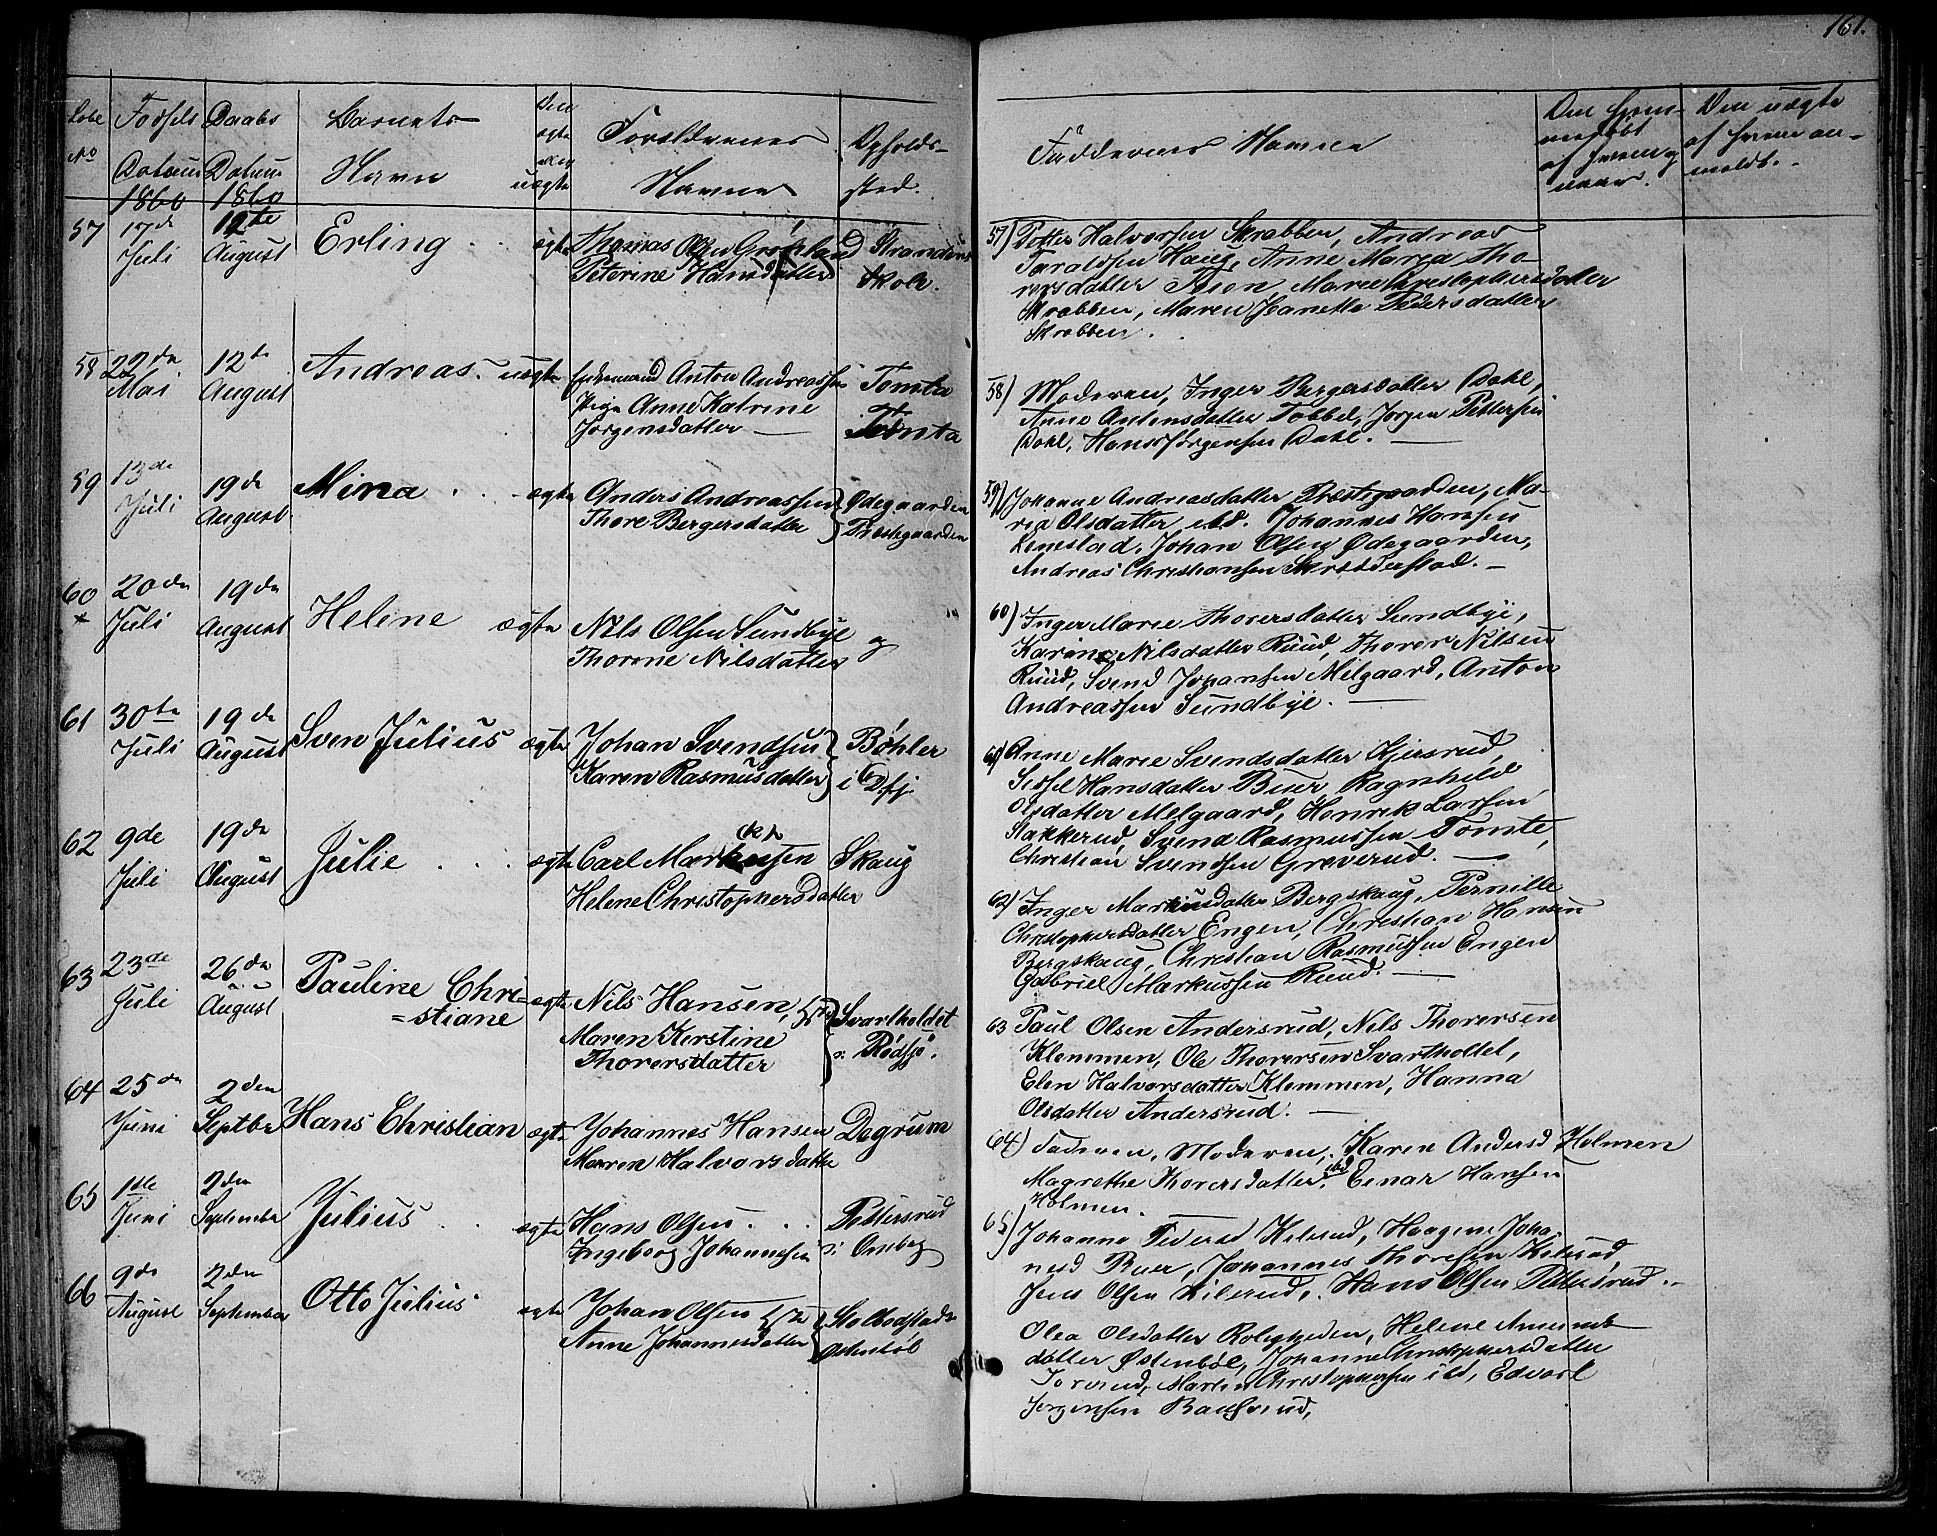 161.
Løbe No
Fødsels Datum 1860
Daabs Datum 1860
Barnets Navn
Om ægte eller uægte
Forældrenes Navne
Opholdssted.
Faddernes Navne
Om hjemmedøbt af hvem og naar.
Den uægte af hvem anmeldt.
57 17de Juli 12te August Erling ægte Thomas Olsen Grønland
Peterine Hansdatter
Strandens Skole.
58 22de Mai 12te August Andreas. uægte Anton Andreassen Tomta
Pige Anne Katrine
Jørgensdatter — Tomta
59 13de Juli 19de August Mina ægte Anders Andreassen Ødegaarden
Thore Bergersdatter Præstegaarden
60 20de Juli 19de August Helene ægte Nils Olsen Sundbye og
Thorine Nilsdatter
61 30te Juli 19de August Sven Julius ægte Johan Svendsen Bøhler
Karen Rasmusdatter i Ødfj.
62 9de Juli 19de August Julie ægte Carl Markusen Skaug
Helene Christophersdatter
63 23de Juli 26de August Pauline Chri=
=stiane ægte Nils Hansen, Svartholtet
Maren Kerstine
Thorersdatter i Rødsjø.
64 25de Juni 2den Septbr Hans Christian ægte Johannes Hansen Degrum
Maren Halvorsdatter
65 1ste Juni 2den September Julius ægte Hans Olsen Pettersrud
Ingeborg Johannesen i Omberg
66 9de August 2den September Otto Julius ægte Johan Olsen Stolbodstad
Anne Johannesdatter Østenbøl
57) Petter Halvorsen Skrabben, Andreas
Taraldsen Haug, Anne Maria Tho-
rersdatter Tien, Marie Christophersdatter
Skrabben, Maren Jeanette Pedersdatter
Skrabben.
58) Moderen, Inger Bergersdatter Dahl,
Anne Antonsdatter Tobbel, Jørgen Pettersen
Dahl, Hans Jørgensen Dahl. —
59) Johanne Andreasdatter Præstegaarden, Ma-
ria Olsdatter ibd. Johannes Hansen
Lenestad, Johan Olsen Ødegaarden,
Andreas Christiansen Skredderstad. —
60) Inger Marie Thorersdatter Sundbye,
Karine Nilsdatter Ruud, Thorer Nilsen
Ruud, Svend Johansen Melgaard, Anton
Andreassen Sundbye. —
61) Anne Marie Svendsdatter Kjersrud,
Sissel Hansdatter Buer, Ragnhild
Olsdatter Melgaard, Henrik Larsen
Stakkerud, Svend Rasmussen Tomte,
Christian Svendsen Greverud. —
62) Inger Markusdatter Bergskaug, Pernille
Christophersdatter Engen, Christian Hansen
Bergskaug, Christian Rasmussen Engen
Gabriel Markussen Ruud. —
63 Paul Olsen Andersrud, Nils Thorersen
Klemmen, Ole Thorersen Svartholtet,
Elen Halvorsdatter Klemmen, Hanna
Olsdatter Andersrud. —
64) Faderen, Moderen, Karen Andersd Holmen
Magrethe Thorersdatter ibd, Einar Hansen
Holmen.
65) Johanne Pedersd Kilerud, Haagine Joha-
nesd Buer, Johannes Thoresen Kilerud,
Jens Olsen Kilerud, Hans Olsen Pettersrud.
Olea Olsdatter Roligheden, Helene Amunds
datter Østenbøl, Johanne Christophersdatter
Torerud, Martin Christophersen ibd, Edvart
Jørgensen